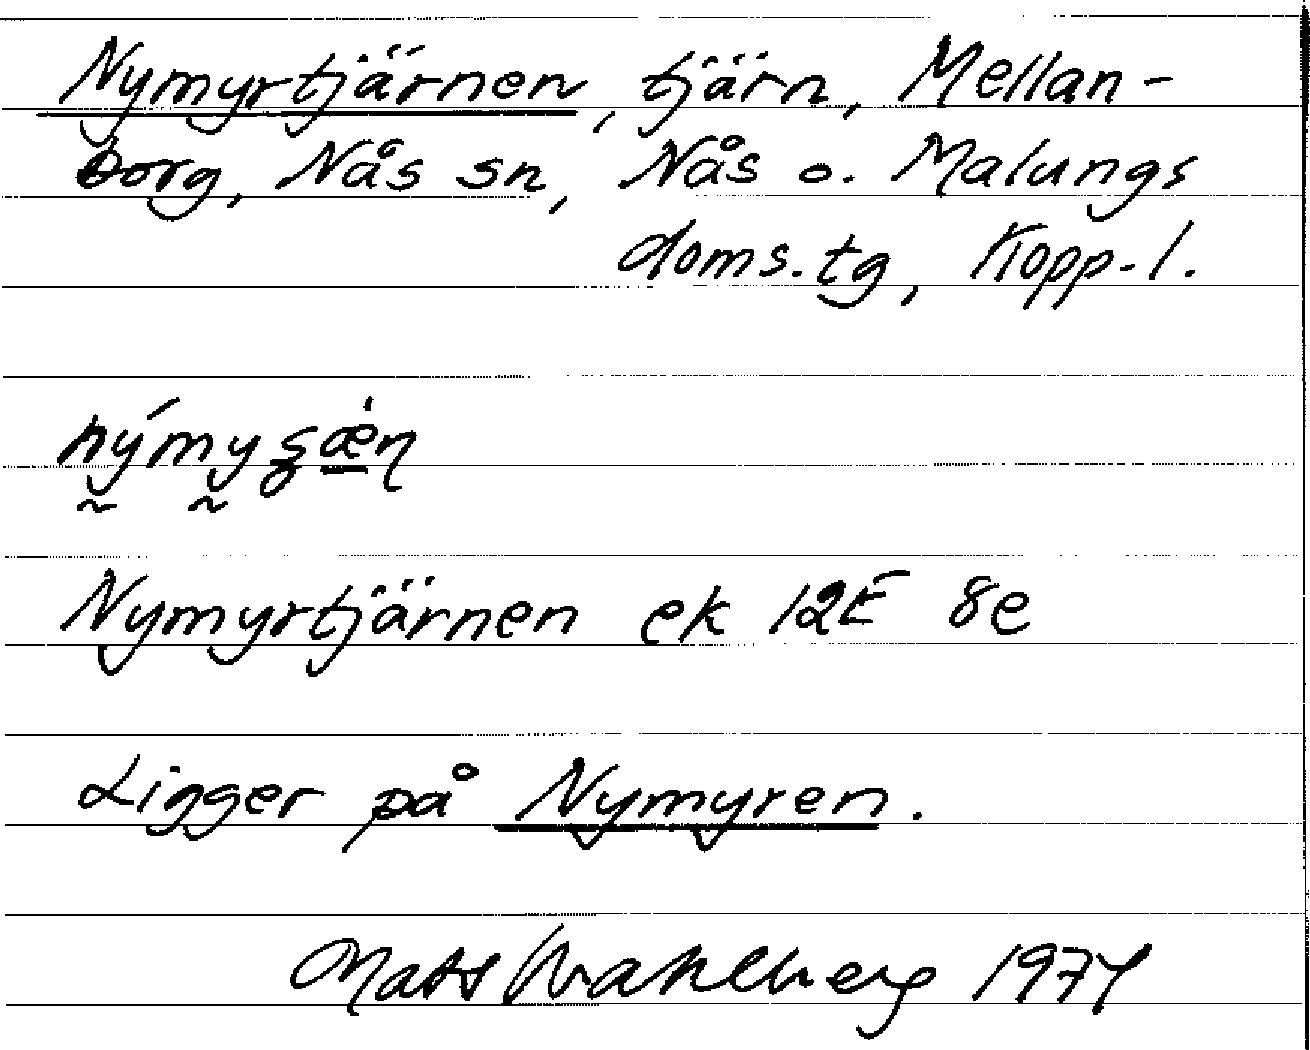 Nymyrtjärnen, tjärn, Mellan-
borg, Nås sn, Nås o. Malungs
doms.tg, Kopp-l.
Nymyrtjärnen ek 12E 8e
Ligger på Nymyren.
Mats Wahlberg 1974